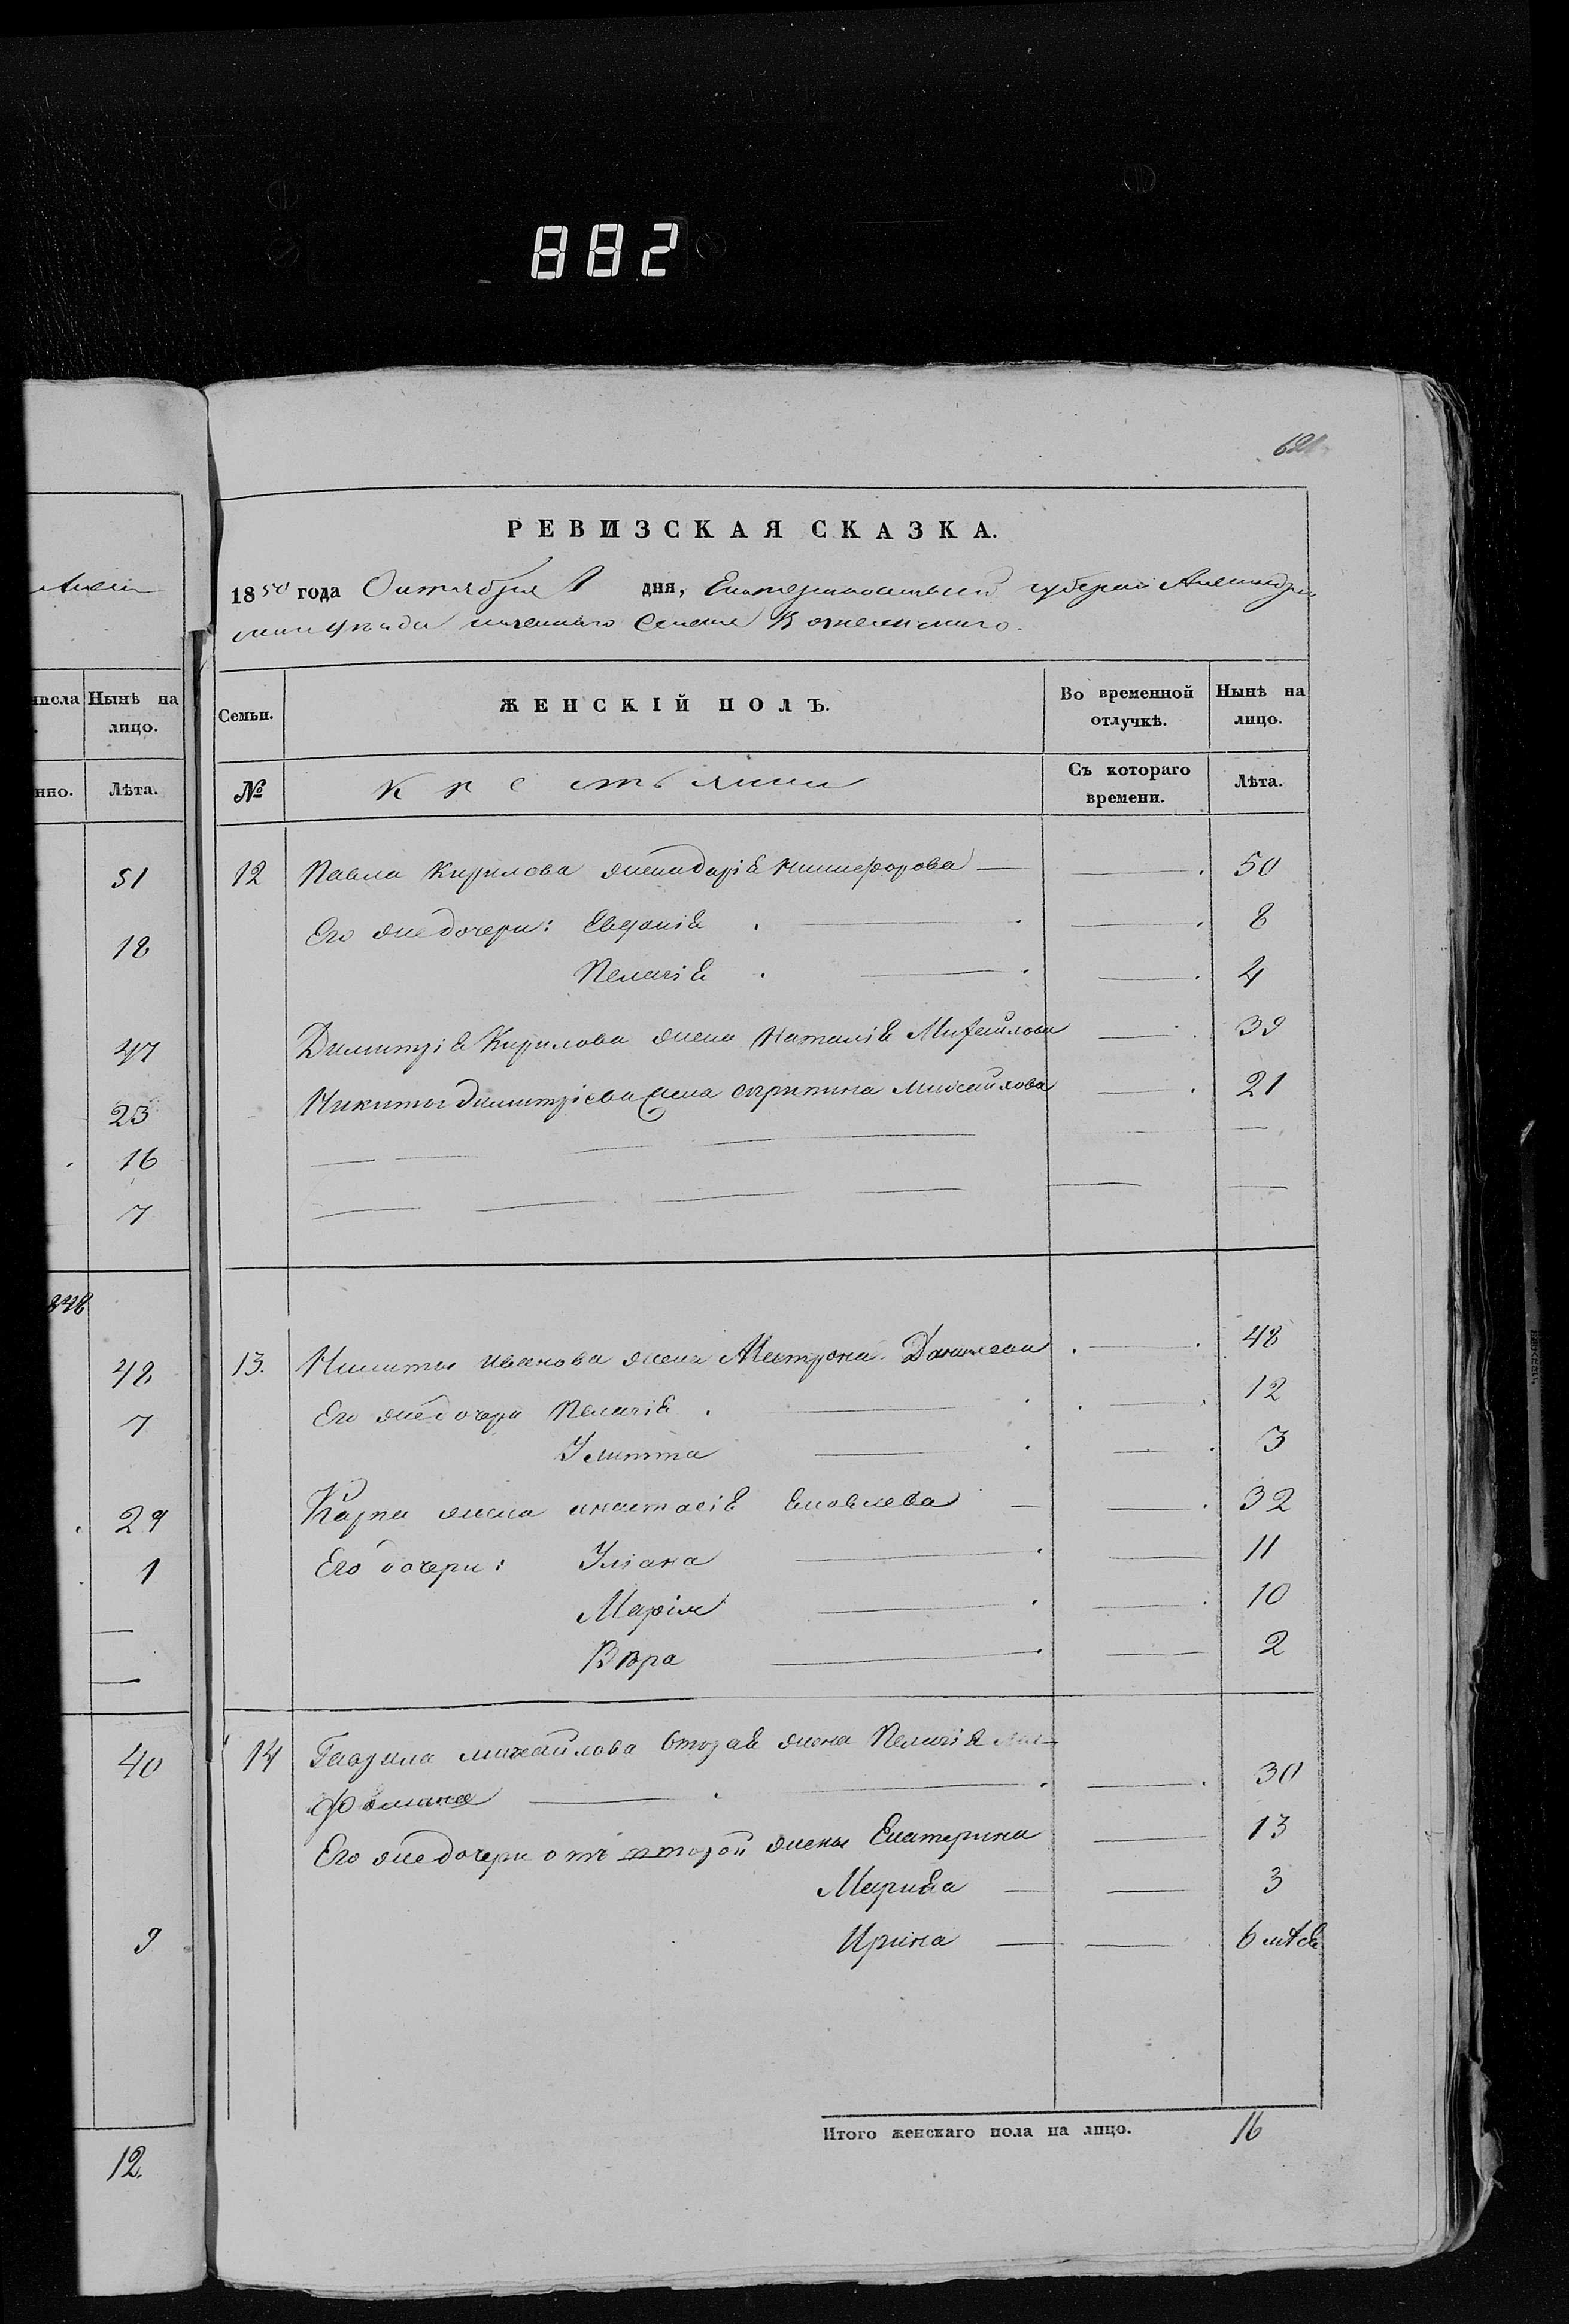 882
621
РЕВИЗСКАЯ СКАЗКА.
1850 года Октября 1 дня, Екатеринославской губернии Александро
вскаго уѣзда казеннаго селенія Вознесенскаго.
числа Нынѣ на
лицо.
нно. Лѣта.
51
18
47
23
16
7
848
48
7
29
1
40
9
12.
Семьи. ЖЕНСКІЙ ПОЛЪ. Во временной отлучкѣ. Нынѣ на лицо.
№ Крестьянки Съ котораго времени. Лѣта.
12 Павла Кирилова жена дарія Никифорова 50
Его же дочери: Евдокія 8
Пелагія 4
Димитрія Кирилова жена Наталія Михайлова 39
Никиты димитріева жена агрипина Михайлова 21
13. Никиты иванова жена Матрона Данилова 48
Его же дочери Пелагія 12
Улитта 3
Карпа жена анастасія Яковлева 32
Его дочери: Уліана 11
Марія 10
Вѣра 2
14 Гавриила михайлова вторая жена Пелагія
Фомина 30
Его же дочери отъ второй жены Екатерина 13
Марина 3
Ирина 6 мѣся
Итого женскаго пола на лицо. 16